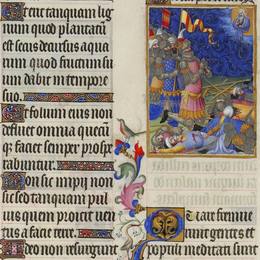 Et erit tanquam lig
num quod plantatum
est secus decursus aqua
rum quod fructum su
um dabit in tempore
suo
Et folium eius non
defluet omnia quecu
q; faciet semper prospe
rabuntur
Non sic impij non
sic sed tanquam pul
uis quem proicit uen
tus a facie terre
Ideo non resurgunt
fremue
runt gentes et
populi meditati sunt